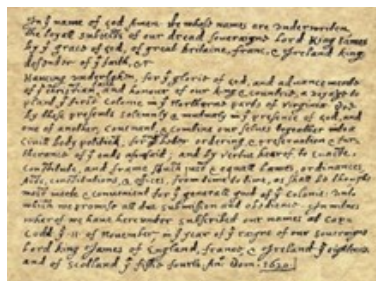 In ẏ name of god Amen. We whose names are underwriten,
the loyal subiects of our dread soveraigne lord King James
by ẏ grace of god, of great Britaine, franc, & Ireland king,
defender of ẏ faith, &c
Haveing undertaken, for ẏ glorie of god, and advancemente
of ẏ christian, and honour of our king & countrie, a voyage to
plant ẏ first colonie in ẏ Northerne parts of Virginia. Doe
by these presents solemnly & mutualy in ẏ presence of god, and
one of another, covenant, & combine our selves togeather into a
civill body politick, for better ordering, & preservation & fur-
therance of ẏ ends aforesaid; and by vertue hearof to enacte,
constitute, and frame such just & equall lawes, ordinances,
Acts, constitutions, & offices, from time to time, as shall be thought
most meete & convenient for ẏ generall good of ẏ colonie: unto
which we promise all due submission and obedience. In witnes
wherof we have hereunder subscribed our names at Cape
Codd ẏ .11. of November in ẏ year of ẏ raigne of our soveraigne
Lord king James of England, france, & Ireland ẏ eighteene
and of Scotland ẏ fiftie fourth. Ano Dom. 1620.